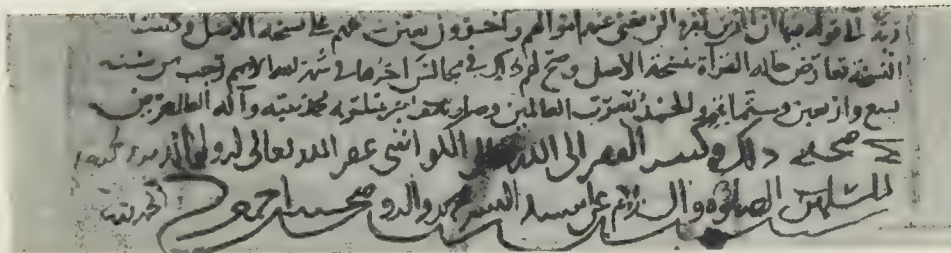 الى قوله فيها ان الذين كفروا لن تغني عنهم اموالهم في نسخة الاصل وكتبت
النسخة تعارض حالة القراءة بنسخة الاصل وصح لهم ذلك في مجالس اخرها في شهر الله الاصم رجب من سنة
سبع واربعين وستمائة والحمد لله رب العالمين وصلواته على خير خلقه محمد نبيه وآله الطاهرين
صحيح ذلك وكتب الفقير الى الله الكواشي غفر الله تعالى له ولوالديه
المسلمين والصلوة والسلام على سيد البشر محمد واله وصحبه اجمعين